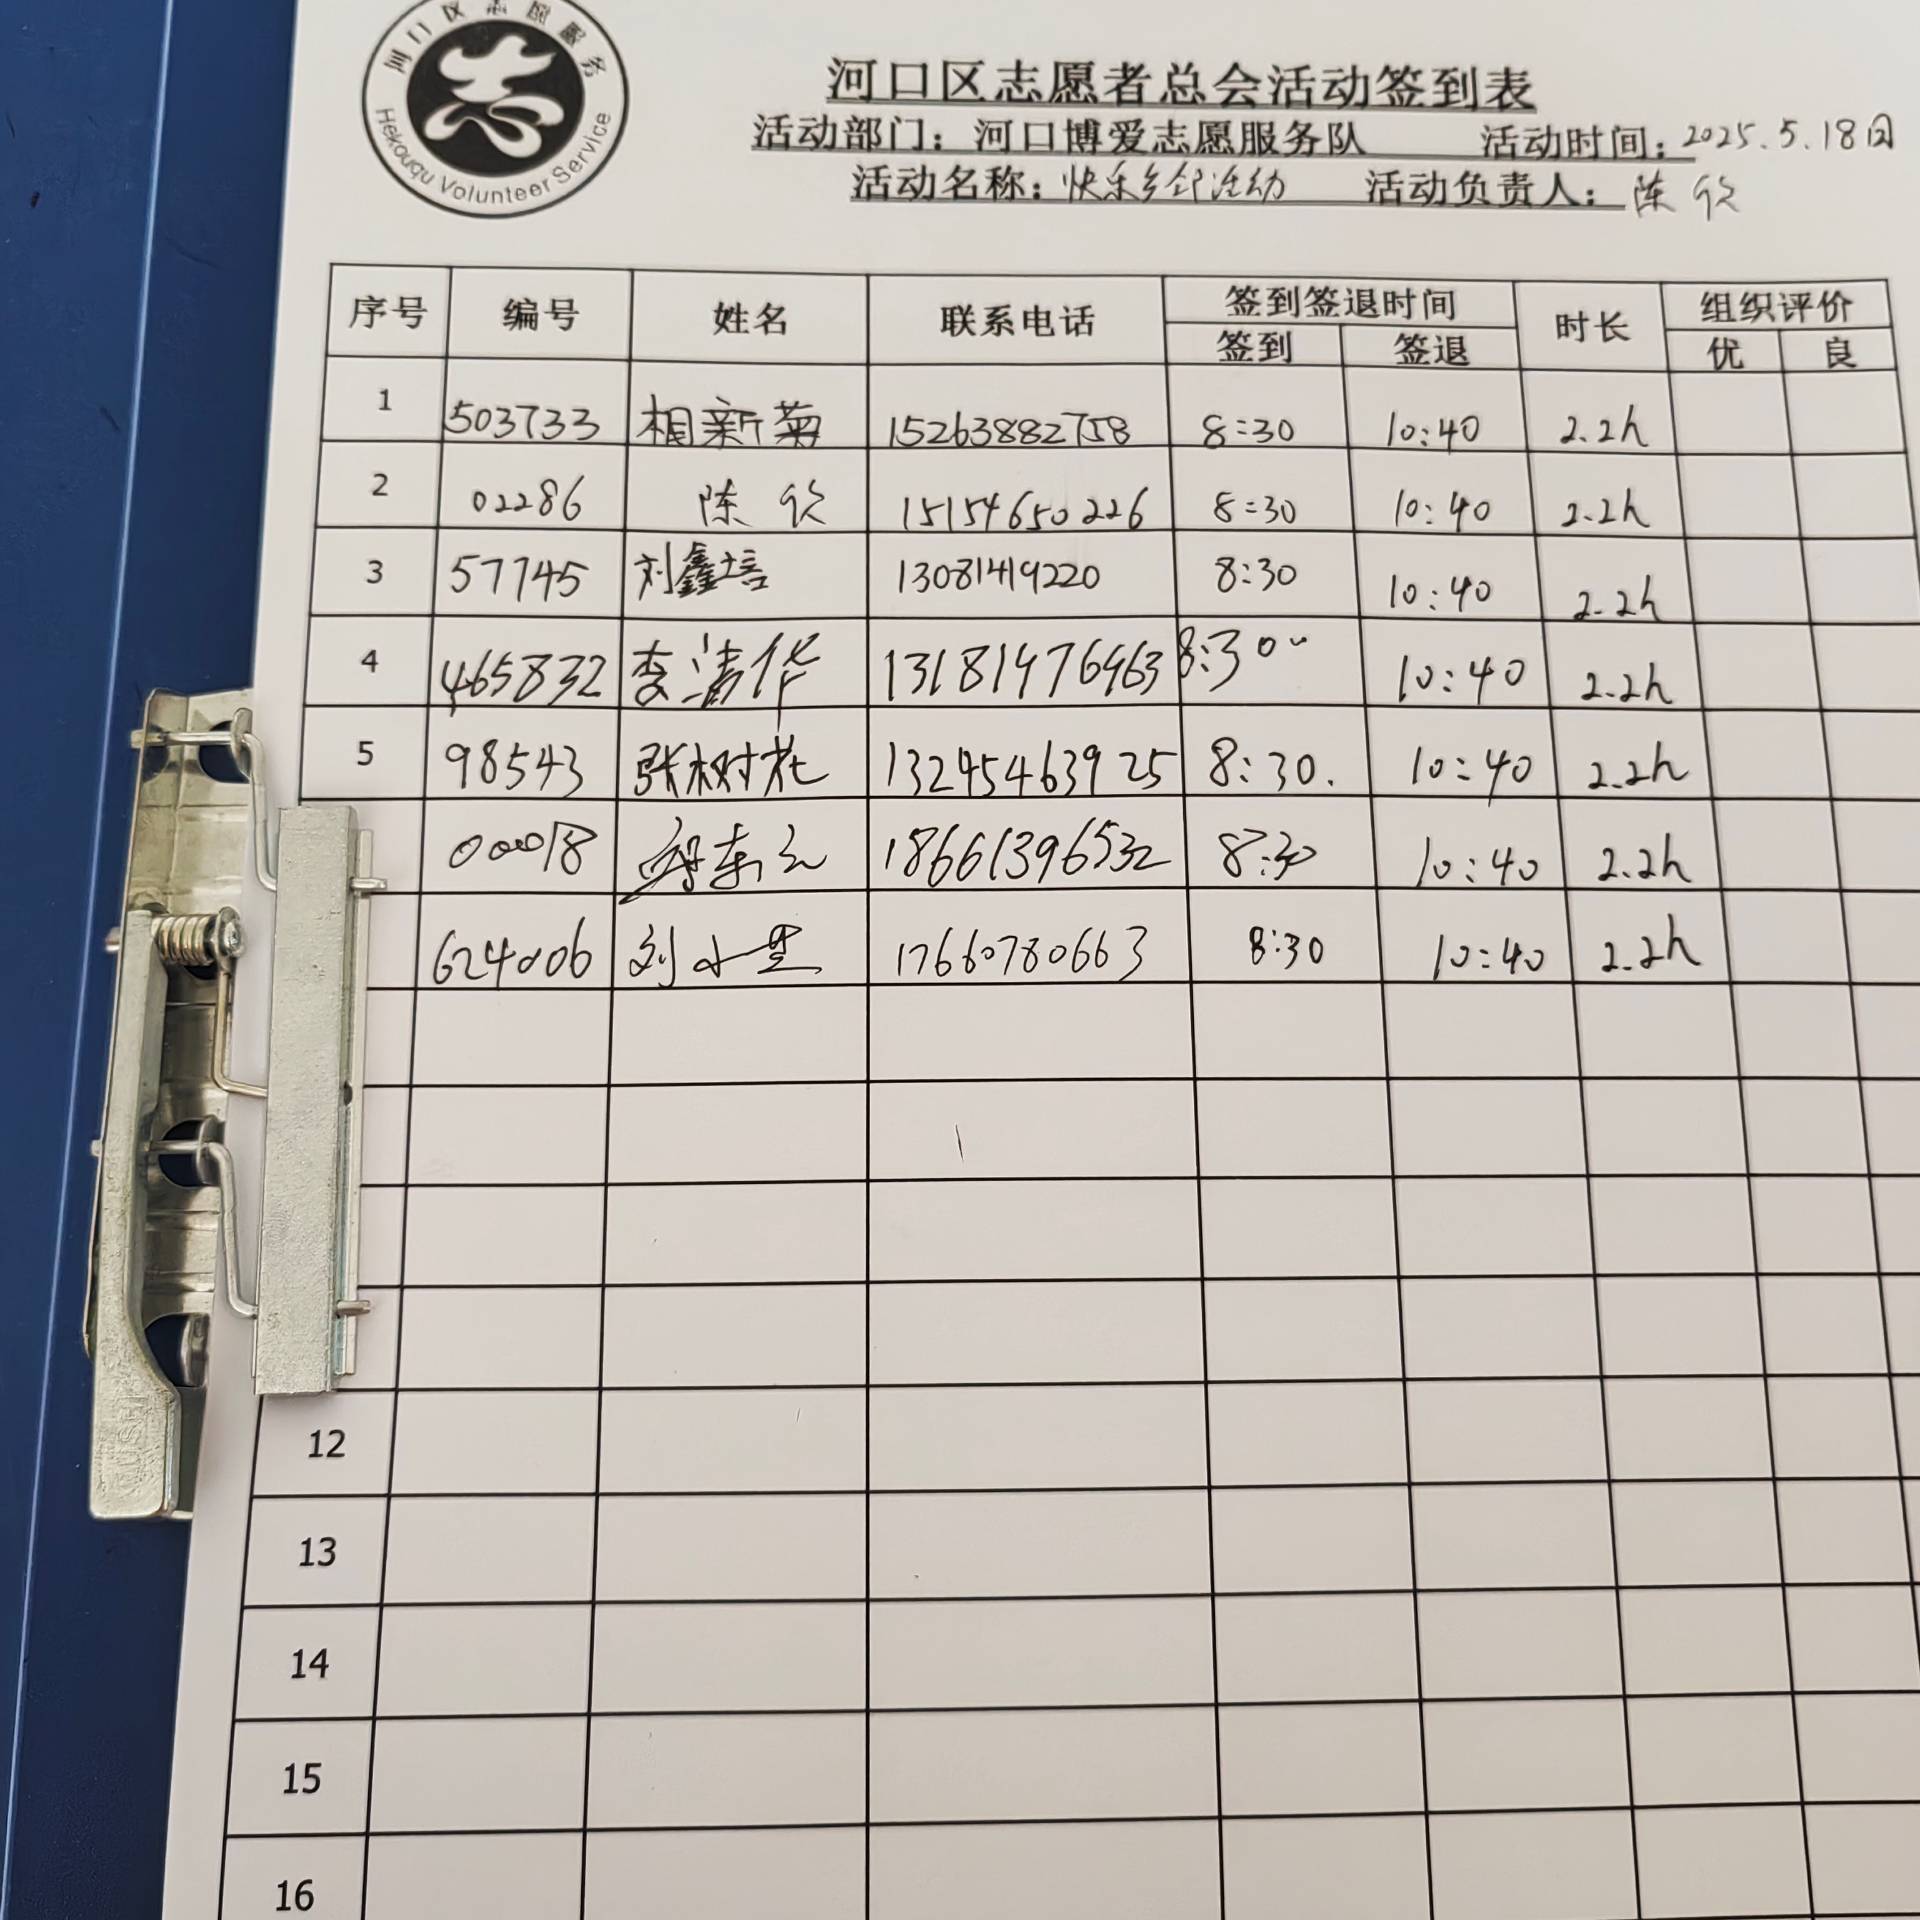 河口区志愿服务
Hekouqu Volunteer Service
河口区志愿者总会活动签到表
活动部门：河口博爱志愿服务队 活动时间：2025.5.18日
活动名称：快乐乡邻活动 活动负责人：陈
序号 编号 姓名 联系电话 签到签退时间 时长 组织评价
签到 签退 优 良
1 503733 相新菊 15263882758 8:30 10:40 2.2h
2 02286 陈 15154650226 8:30 10:40 2.2h
3 57745 刘鑫培 13081419220 8:30 10:40 2.2h
4 465832 李清华 13181976963 8:30 10:40 2.2h
5 98543 张树花 13295463925 8:30. 10:40 2.2h
00018 18661396532 8:30 10:40 2.2h
624006 刘小 17660780663 8:30 10:40 2.2h
12
13
14
15
16